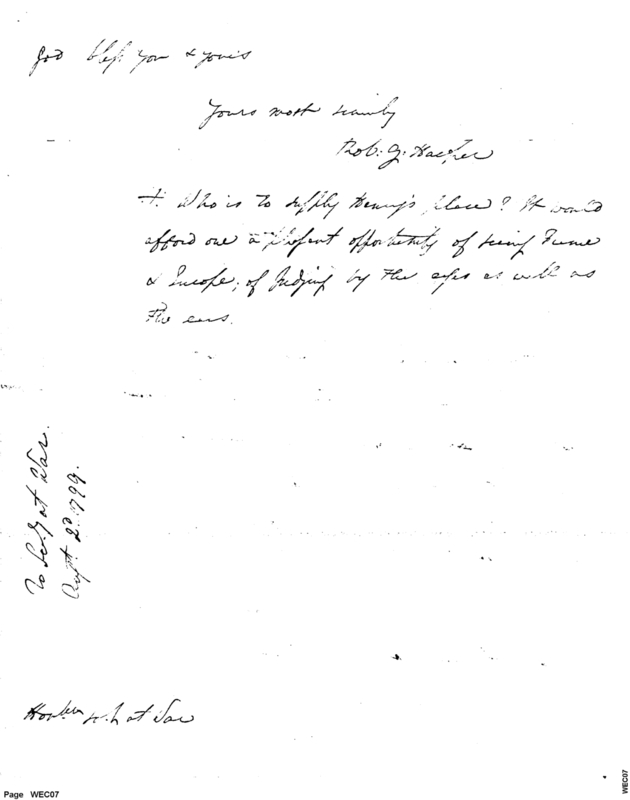 God bless you & yours
Yours most sincerely
Rob. G. Harper
+. Who is to supply Henry's place? It would
afford one a pleasant opportunity of seeing France
& Europe; of Judging by the eyes as well as
the ears.
To Secy at War.
Augt. 2d. 1799.
at War
Page WEC07
WEC07